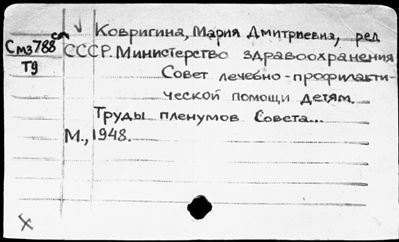 Ковригина, Мария Дмитриевна, ред
См378 СССР. Министерство здравоохранения
Т9 Совет лечебно-профилакти-
ческой помощи детям.
Труды пленумов Совета...
М., 1948.